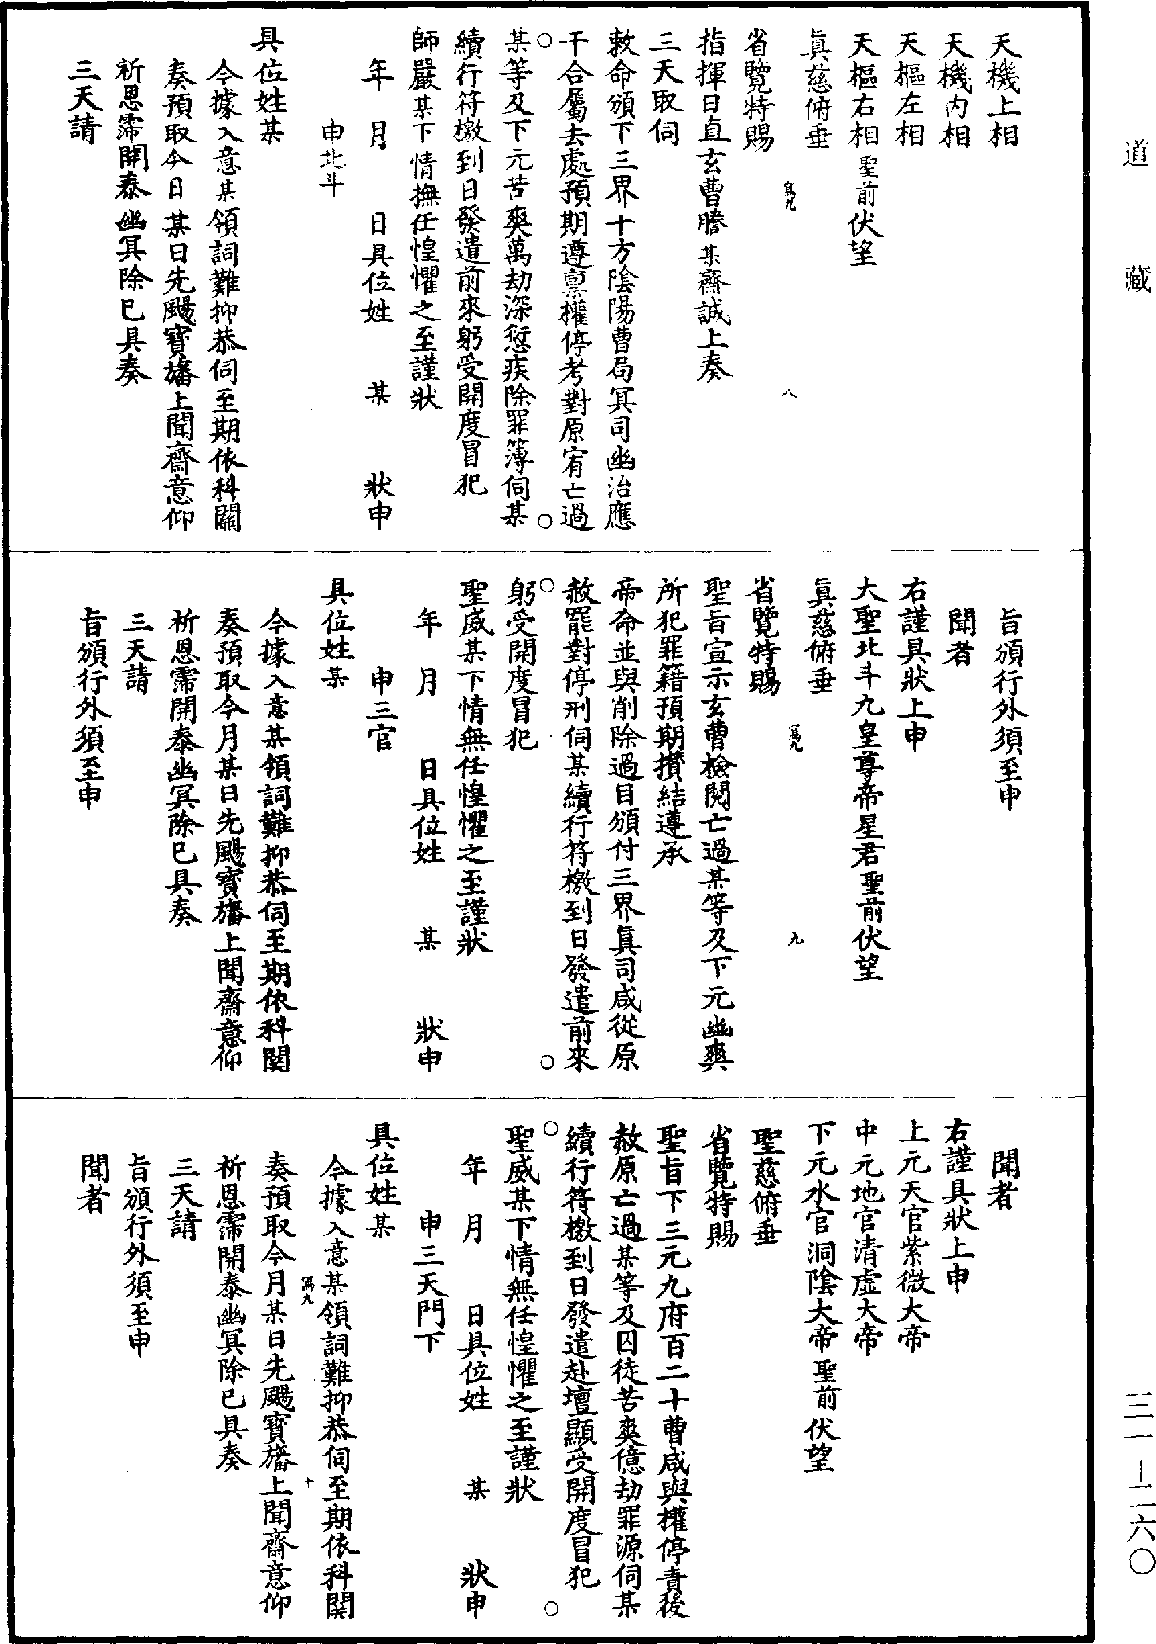 道藏
天機上相
天機內相
天樞左相
天樞右相聖前伏望
眞慈俯垂
省覽特賜
寫九 八
指揮日直玄曹謄某齋誠上奏
三天取伺
敕命頒下三界十方陰陽曹局冥司幽治應
干合屬去處預期遵禀權停考對原宥亡過
某等及下元苦爽萬劫深愆疾除罪簿伺某
續行符檄到日發遣前來躬受開度冒犯
師嚴某下情撫任惶懼之至謹狀
年 月 日具位姓 某 狀申
申北斗
具位姓某
今據入意某領詞難抑恭伺至期依科關
奏預取今日某日先颺寶旛上聞齋意仰
祈恩霈開泰幽冥除已具奏
三天請
旨頒行外須至申
聞者
右謹具狀上申
大聖北斗九皇尊帝星君聖前伏望
眞慈俯垂
省覽特賜
寫九 九
聖旨宣示玄曹檢閱亡過某等及下元幽爽
所犯罪籍預期攢結遵承
帝命並與削除過目頒付三界眞司咸從原
赦罷對停刑伺某續行符檄到日發遣前來
躬受開度冒犯
聖威某下情無任惶懼之至謹狀
年 月 日具位姓 某 狀申
申三官
具位姓某
今據入意某領詞難抑恭伺至期依科関
奏預取今月某日先颺寶旛上聞齋意仰
祈恩霈開泰幽冥除已具奏
三天請
旨頒行外須至申
聞者
右謹具狀上申
上元天官紫微大帝
中元地官清虛大帝
下元水官洞陰大帝聖前伏望
聖慈俯垂
省覽特賜
聖旨下三元九府百二十曹咸與權停責後
赦原亡過某等及囚徒苦爽億劫罪源伺某
續行符檄到日發遣赴壇顯受開度冒犯
聖威某下情無任惶懼之至謹狀
年 月 日具位姓 某 狀申
申三天門下
具位姓某
今據入意某領詞難抑恭伺至期依科関
寫九 十
奏預取今月某日先颺寶旛上聞齋意仰
祈恩霈開泰幽冥除已具奏
三天請
旨頒行外須至申
聞者
三一—二六〇